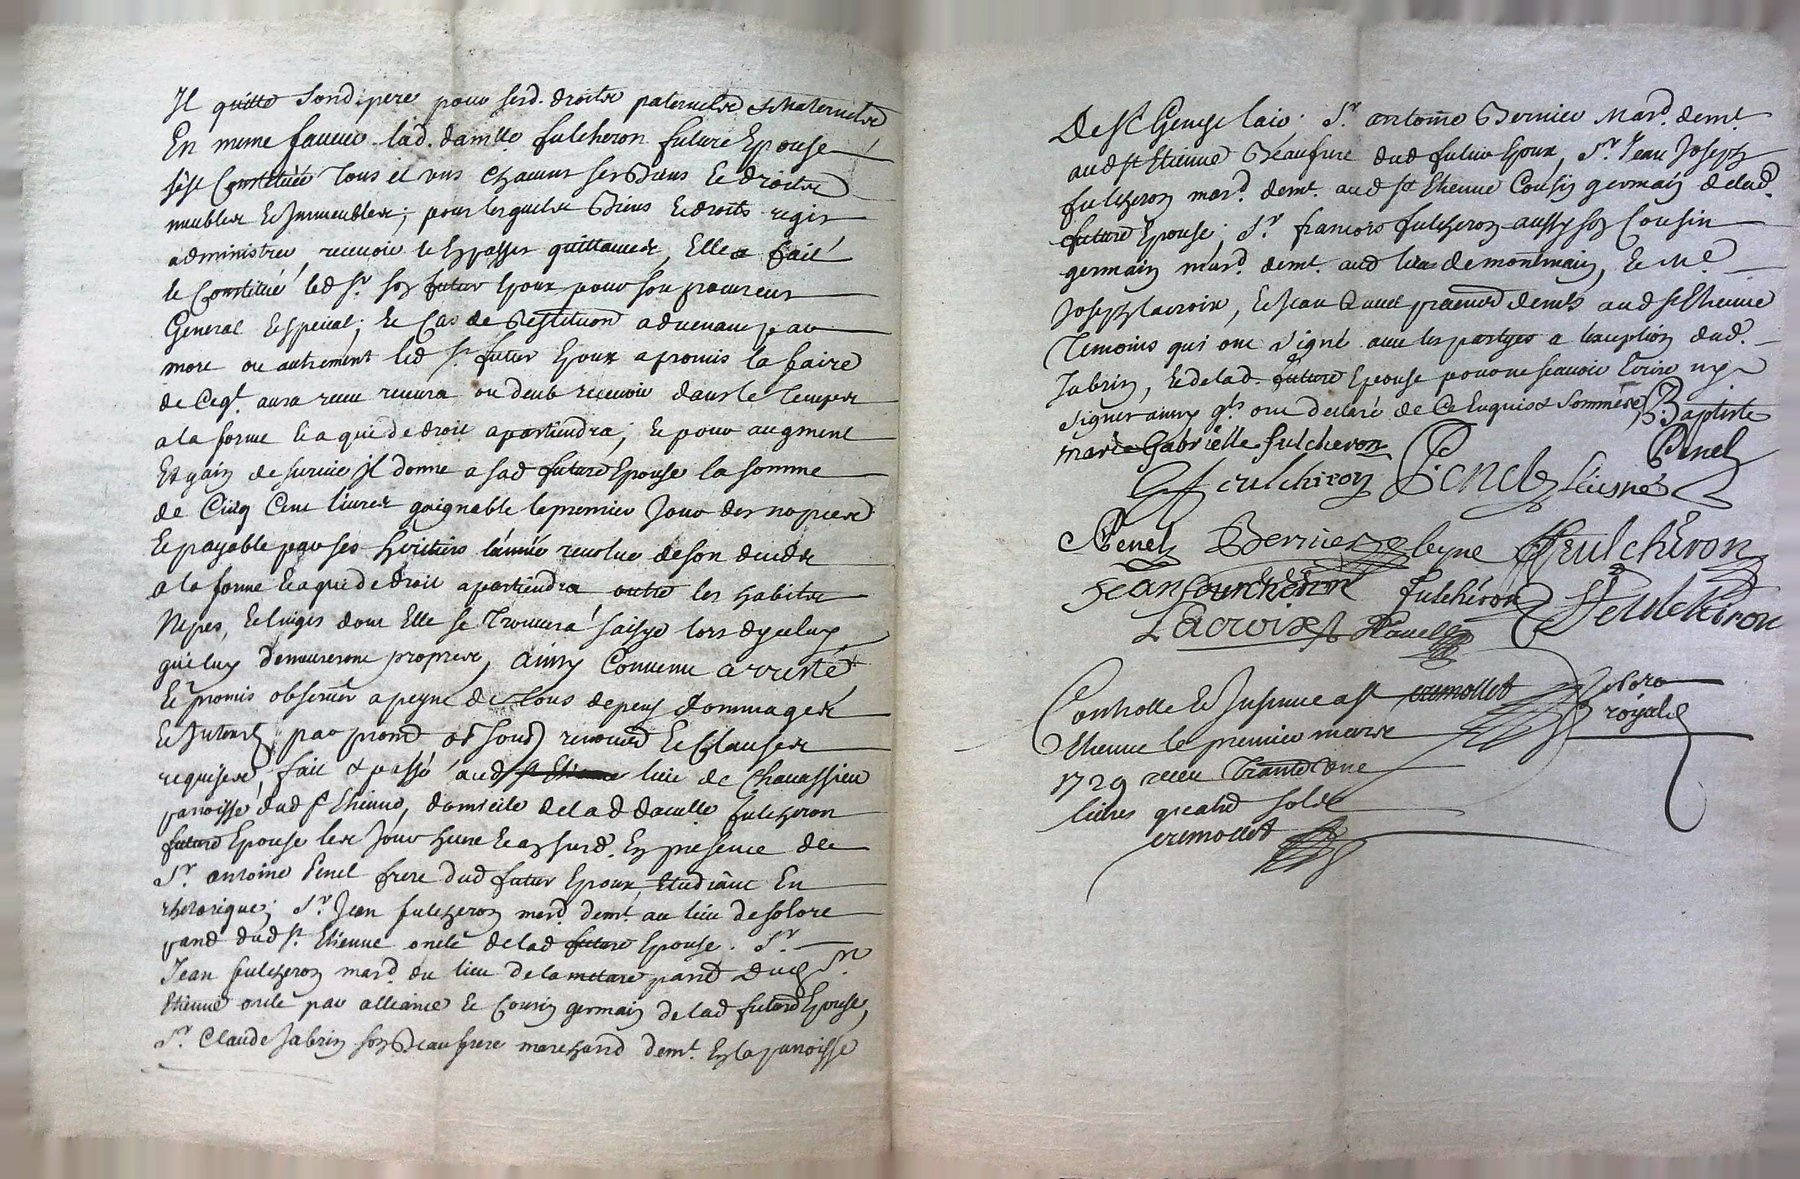 Il quitte sondi pere pour sesd. droits paternels & maternels
En meme faveur lad. damlle fulcheron future Epouse
s'est Constituée Tous et uns chacuns ses Biens & droits
meubles & Immeubles; pour lesquels Biens & droits regir
administrer, recevoir & passer quittances, Elle a fait
& Constitué led Sr. son futur Epoux pour son procureur
General & special; & Cas de restitution advenant par
mort ou autrement led Sr. futur Epoux a promis la faire
de Ceqt. aura receu recevra ou deub recevoir dans le Temps
a la forme & a qui de droit apartiendra; & pour augment
Et gain de survie Il donne a sad future Epouse la somme
de Cinq Cent livres gaignable le premier Jour des nopces
& payable par ses heritiers l'année revolue de son deceds
a la forme & a qui de droit apartiendra outre les habits
Nipes, & linges dont Elle se Trouvera saisye lors dyceluy
qui luy demeureront propres, ainsy Convenu arresté
& promis observer a peyne de Tous depens dommages
& Interests par promd obld soubd renond & Clauses
requises, fait & passé aud lieu de Chavassieu
parroisse dud St Etienne, domicile delad damlle fulcheron
future Epouse les Jour heure & an susd. En presence de
Sr. antoine Penel frere dud futur Epoux, Etudiant En
rhetorique; Sr. Jean fulcheron mard. demt. au lieu de solore
parsse dud St. Etienne oncle delad future Epouse. Sr.
Jean fulcheron mard du lieu de la parsse dud St
Etienne oncle par alliance & Cousin germain delad future Epouse,
Sr. Claude Jabrin son Beaufrere marchand demt. En la parroisse
De St Genest Sr. antoine Bernier Mard. demt.
aud St Etienne Beaufrere dud futur Epoux, Sr. Jean Joseph
fulcheron mard. demt. aud St Etienne Cousin germain delad.
future Epouse; Sr. francois fulcheron aussy son Cousin
germain mard. demt. aud lieu de montmain, & Me.
Joseph Lacroix, & Jean demts aud St Etienne
Temoins qui ont signé avec les partyes a lexception dud.
Jabrin, & delad. future Epouse pour ne scavoir Ecrire ny
signer ainsy qls ont declaré de Ce Enquis & sommés Baptiste
marie Gabrielle fulcheron Penel
fculchiron Penel
Penel Bernier fculcheron
Jean fourcheron fulchéron
Lacroix
Controllé & Insinué a St cremollet solore
Etienne le premier mars royal
1729 receu Trante une
livres quatre sols
cremollet